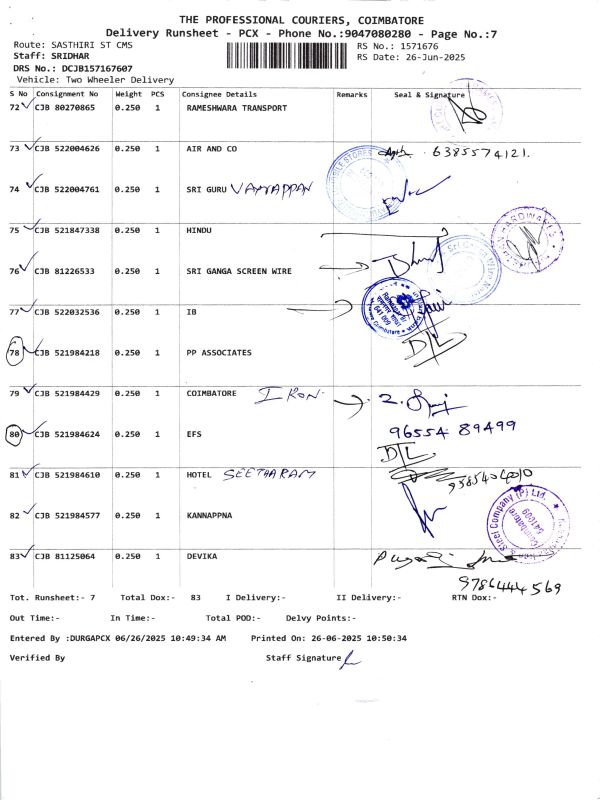 THE PROFESSIONAL COURIERS, COIMBATORE
Delivery Runsheet - PCX - Phone No.:9047080280 - Page No.:7
Route: SASTHIRI ST CMS RS No.: 1571676
Staff: SRIDHAR RS Date: 26-Jun-2025
DRS No.: DCJB157167607
Vehicle: Two Wheeler Delivery
S No Consignment No Weight PCS Consignee Details Remarks Seal & Signature
72 CJB 80270865 0.250 1 RAMESHWARA TRANSPORT
73 CJB 522004626 0.250 1 AIR AND CO 6385574121.
74 CJB 522004761 0.250 1 SRI GURU VAYYAPPAN
75 CJB 521847338 0.250 1 HINDU
76 CJB 81226533 0.250 1 SRI GANGA SCREEN WIRE
77 CJB 522032536 0.250 1 IB
641 009
78 CJB 521984218 0.250 1 PP ASSOCIATES D/L
79 CJB 521984429 0.250 1 COIMBATORE IRON.
96554 89499
80 CJB 521984624 0.250 1 EFS D/L
81 CJB 521984610 0.250 1 HOTEL SEETHARAM
82 CJB 521984577 0.250 1 KANNAPPNA
& Steel Company (P) Ltd.
Coimbatore
641009
83 CJB 81125064 0.250 1 DEVIKA
9786444569
Tot. Runsheet:- 7 Total Dox:- 83 I Delivery:- II Delivery:- RTN Dox:-
Out Time:- In Time:- Total POD:- Delvy Points:-
Entered By :DURGAPCX 06/26/2025 10:49:34 AM Printed On: 26-06-2025 10:50:34
Verified By Staff Signature